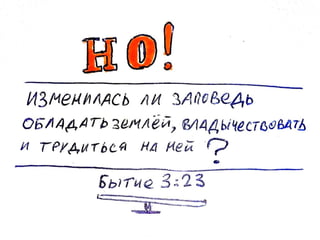 НО!
ИЗМЕНИЛАСЬ ЛИ ЗАПОВЕДЬ
ОБЛАДАТЬ ЗЕМЛЁЙ, ВЛАДЫЧЕСТВОВАТЬ
И ТРУДИТЬСЯ НА НЕЙ ?
БЫТИЕ 3:23